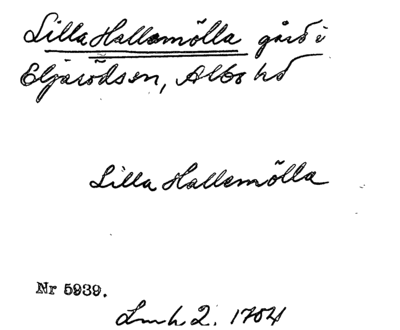 Lilla Hallamölla gård i
Eljarödsn, Albo hd
Lilla Hallamölla
Nr 5939.
Lmh 2. 1704